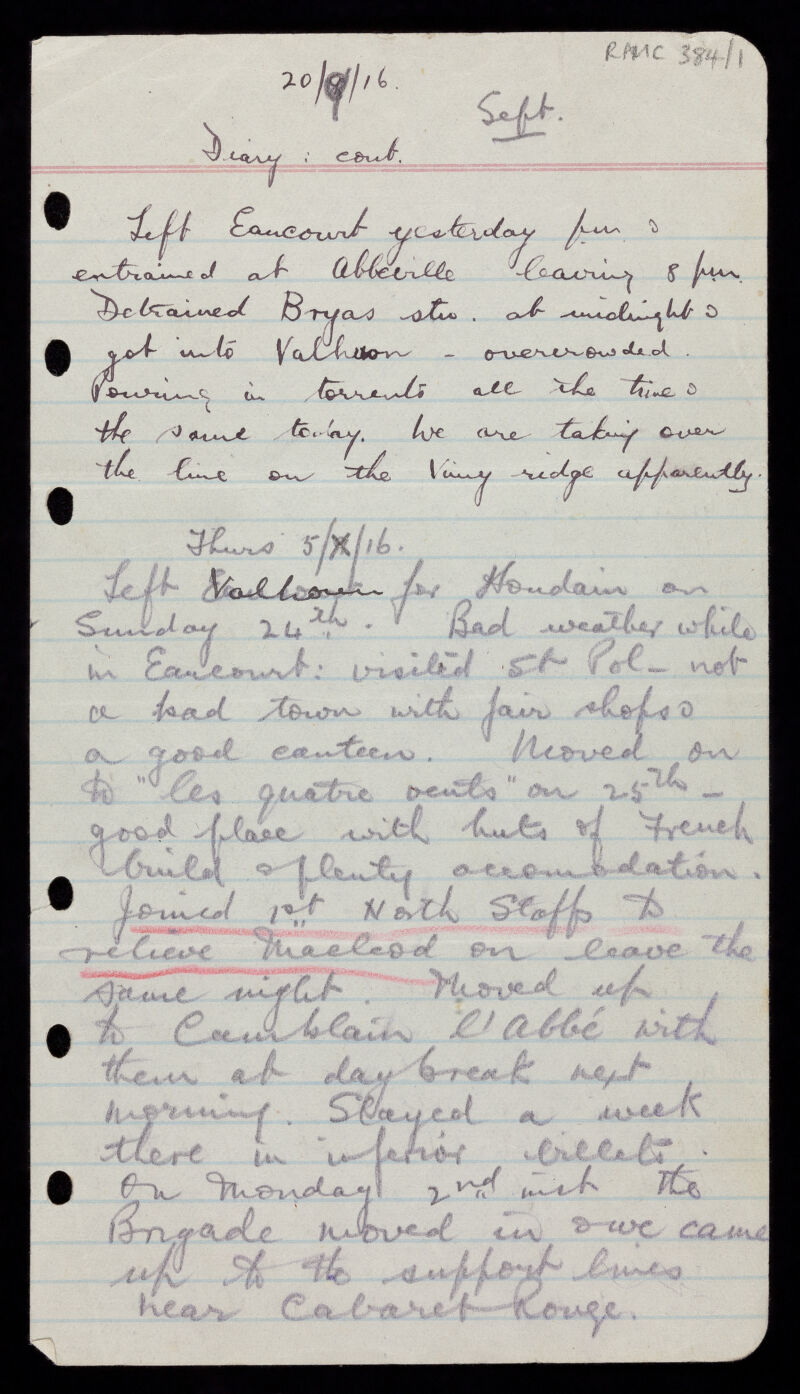 RAMC 384/1
20/9/16.
Sept.
Diary : cont.
Left Eaucourt yesterday pm &
entrained at Abbeville leaving 8 pm.
Detrained Bryas stn. at midnight &
got into Valhuon - overcrowded.
Pouring in torrents all the time &
the same today. We are taking over
the line on the Vimy ridge apparently.
Thurs 5/X/16.
Left Valhoun for Houdain on
Sunday 24th. Bad weather while
in Eaucourt: visited St Pol - not
a bad town with fair shops &
a good canteen. Moved on
to "les quatre vents" on 25th -
good place with huts of French
build & plenty accomodation.
Joined 1st North Staffs to
relieve Macleod on leave the
same night. Moved up
to Camblain l'Abbé with
them at daybreak next
morning. Stayed a week
there in inferior billets.
On Monday 2nd inst the
Brigade moved in & we came
up to the support lines
near Cabaret Rouge.